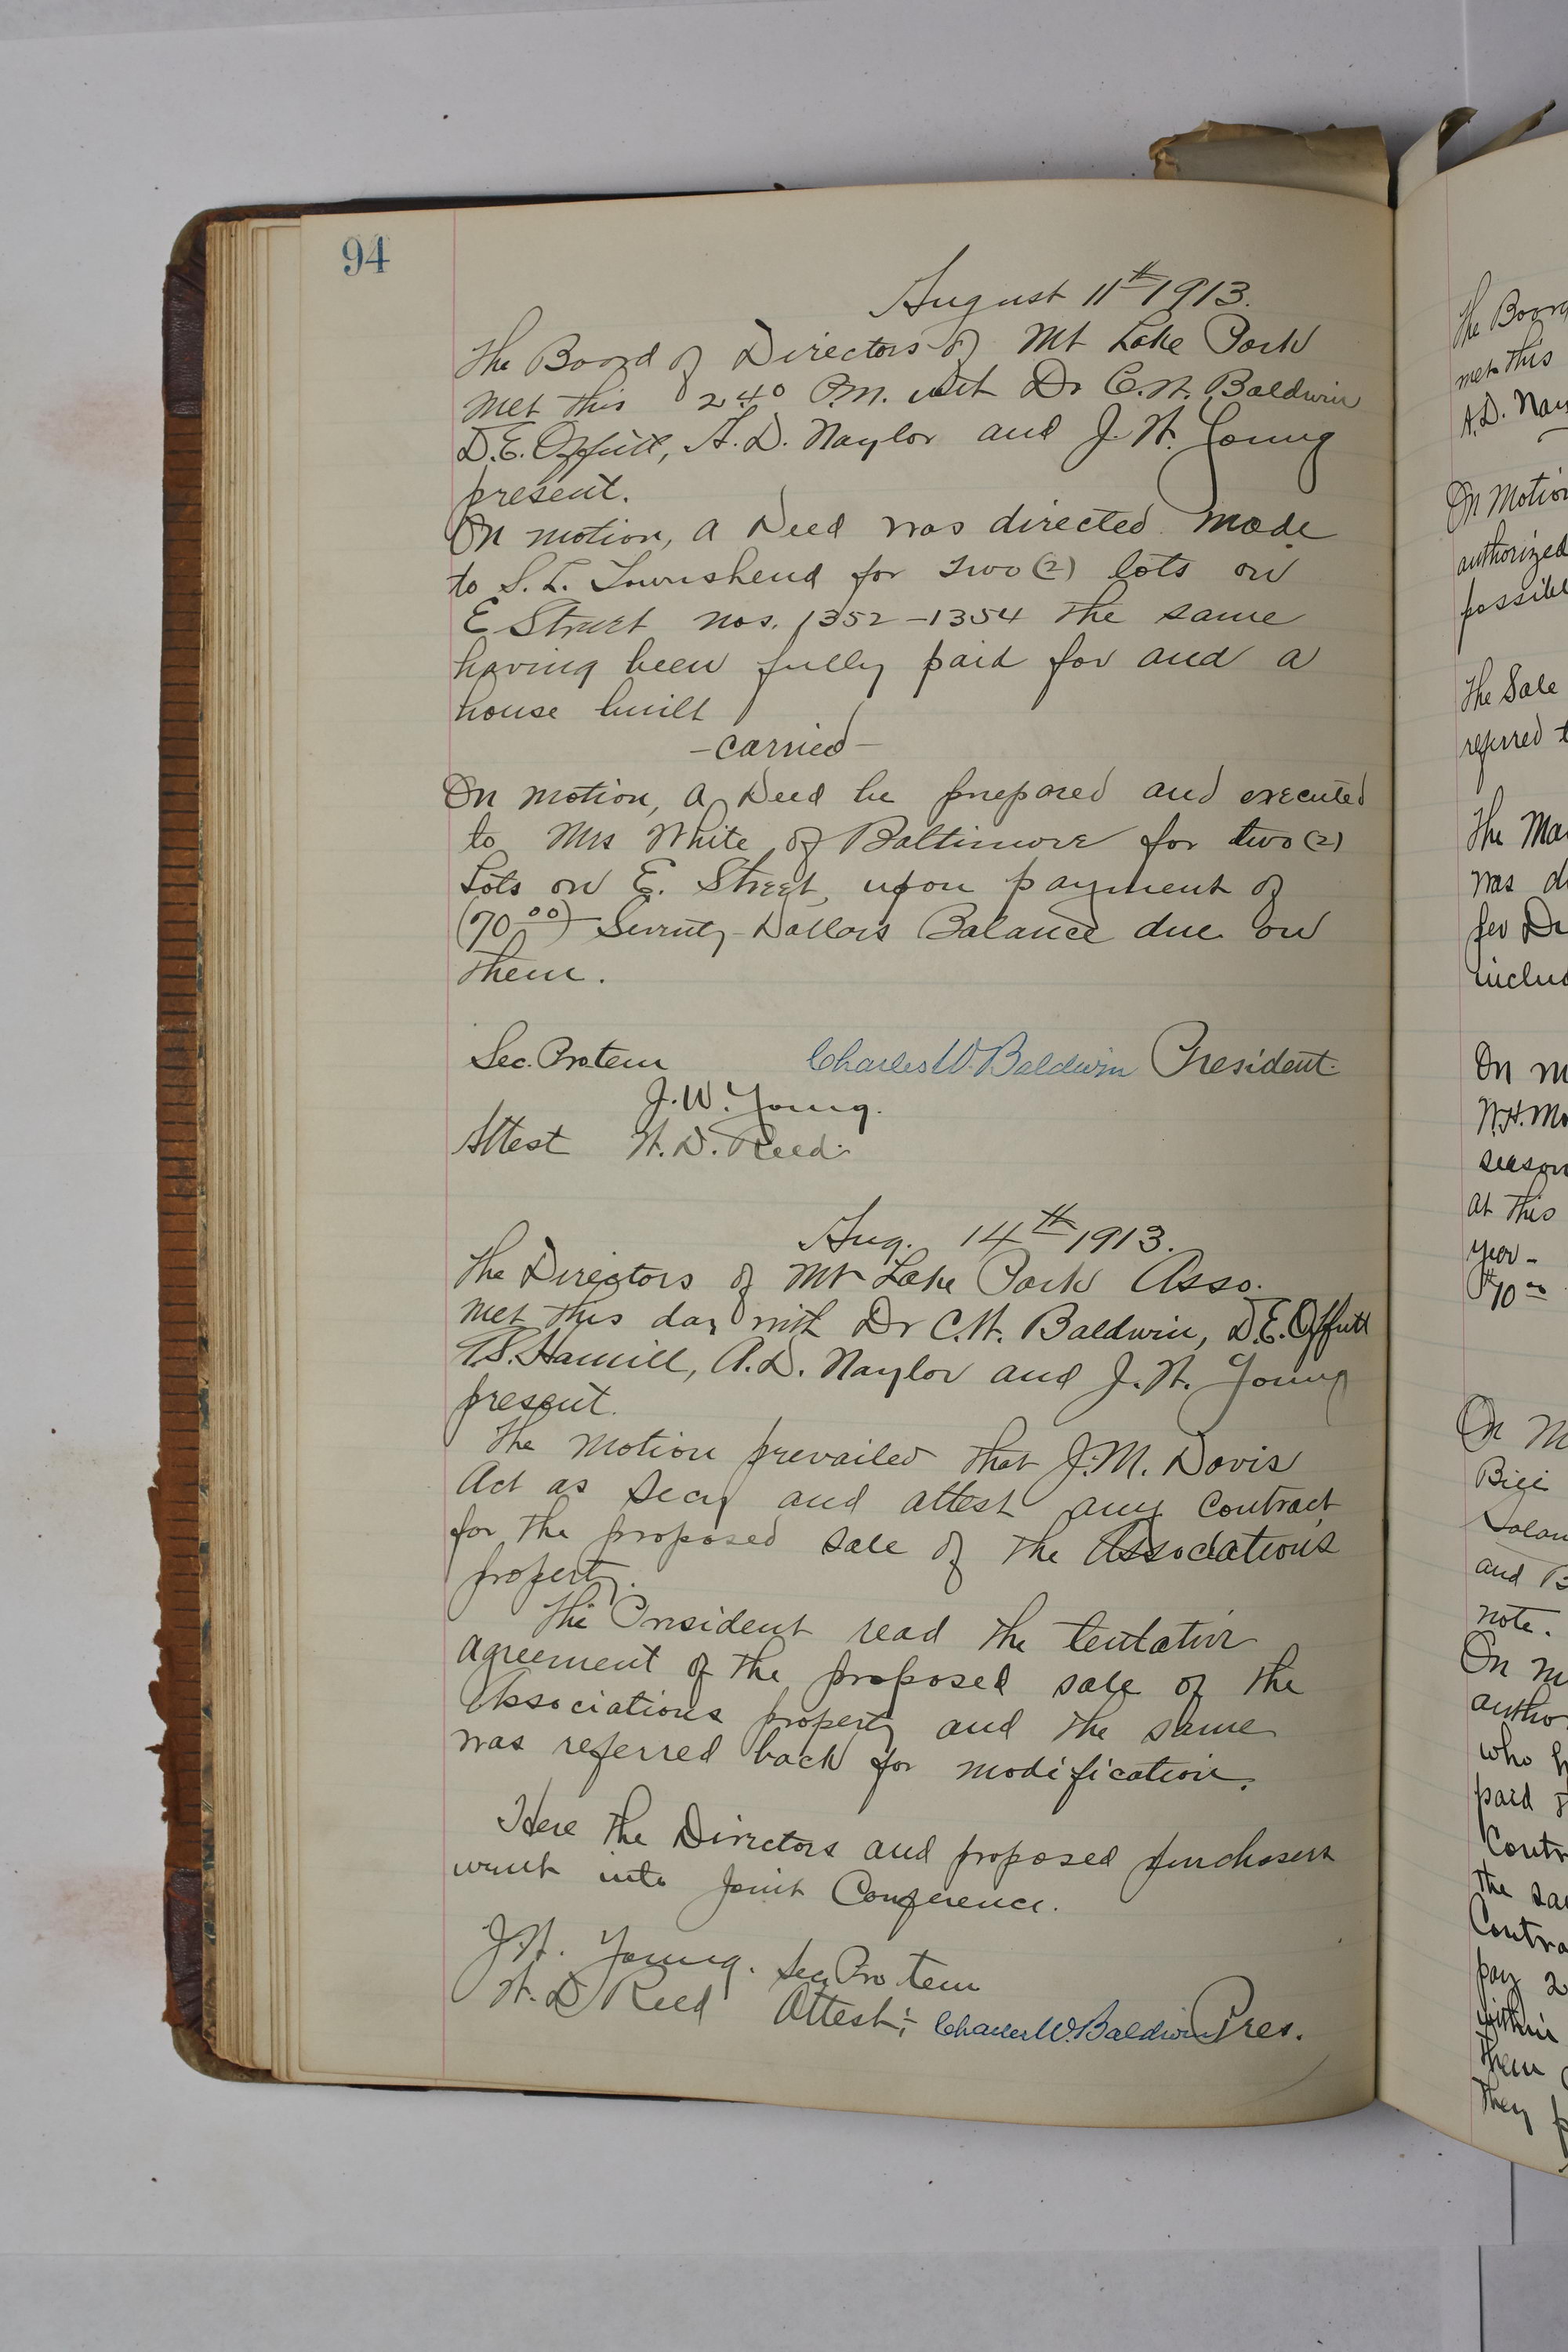 94
August 11th 1913.
The Board of Directors of Mt Lake Park
met this 2 40 P.M. with Dr C.W. Baldwin
D.E. Offutt, A.D. Naylor and J.W. Young
present.
On motion, a Deed was directed made
to S.L. Townshend for two (2) lots on
E Street nos. 1352-1354 the same
having been fully paid for and a
house built
-carried-
On motion, a Deed be prepared and executed
to Mrs White of Baltimore for two (2)
Lots on E. Street, upon payment of
(70 00) Seventy Dollars Balance due on
them.
Sec. Protem Charles W. Baldwin President.
J.W. Young.
Attest W.D. Reed.
Aug. 14th 1913.
The Directors of Mt Lake Park Asso.
met this day with Dr C.W. Baldwin, D.E. Offutt
P.S. Hamill, A.D. Naylor and J.W. Young
present.
The motion prevailed that J.M. Davis
Act as Secy and attest any contract
for the proposed sale of the Association's
property.
The President read the tentative
agreement of the proposed sale of the
Associations property and the same
was referred back for modification.
Here the Directors and proposed purchasers
went into Joint Conference.
J.W. Young. Sec Pro tem
W. D Reed Attest:- Charles W. Baldwin Pres.
The Board
met this
A.D. Nay
On Motion
authorized
possible
The Sale
referred t
The Ma
was d
for Dr
includ
On m
W.H. Mo
season
at this
year-
$10 00
On M
Bill
Solan
and B
note.
On m
autho
who h
paid
Contr
the sa
Contra
pay 2
within
them
they p